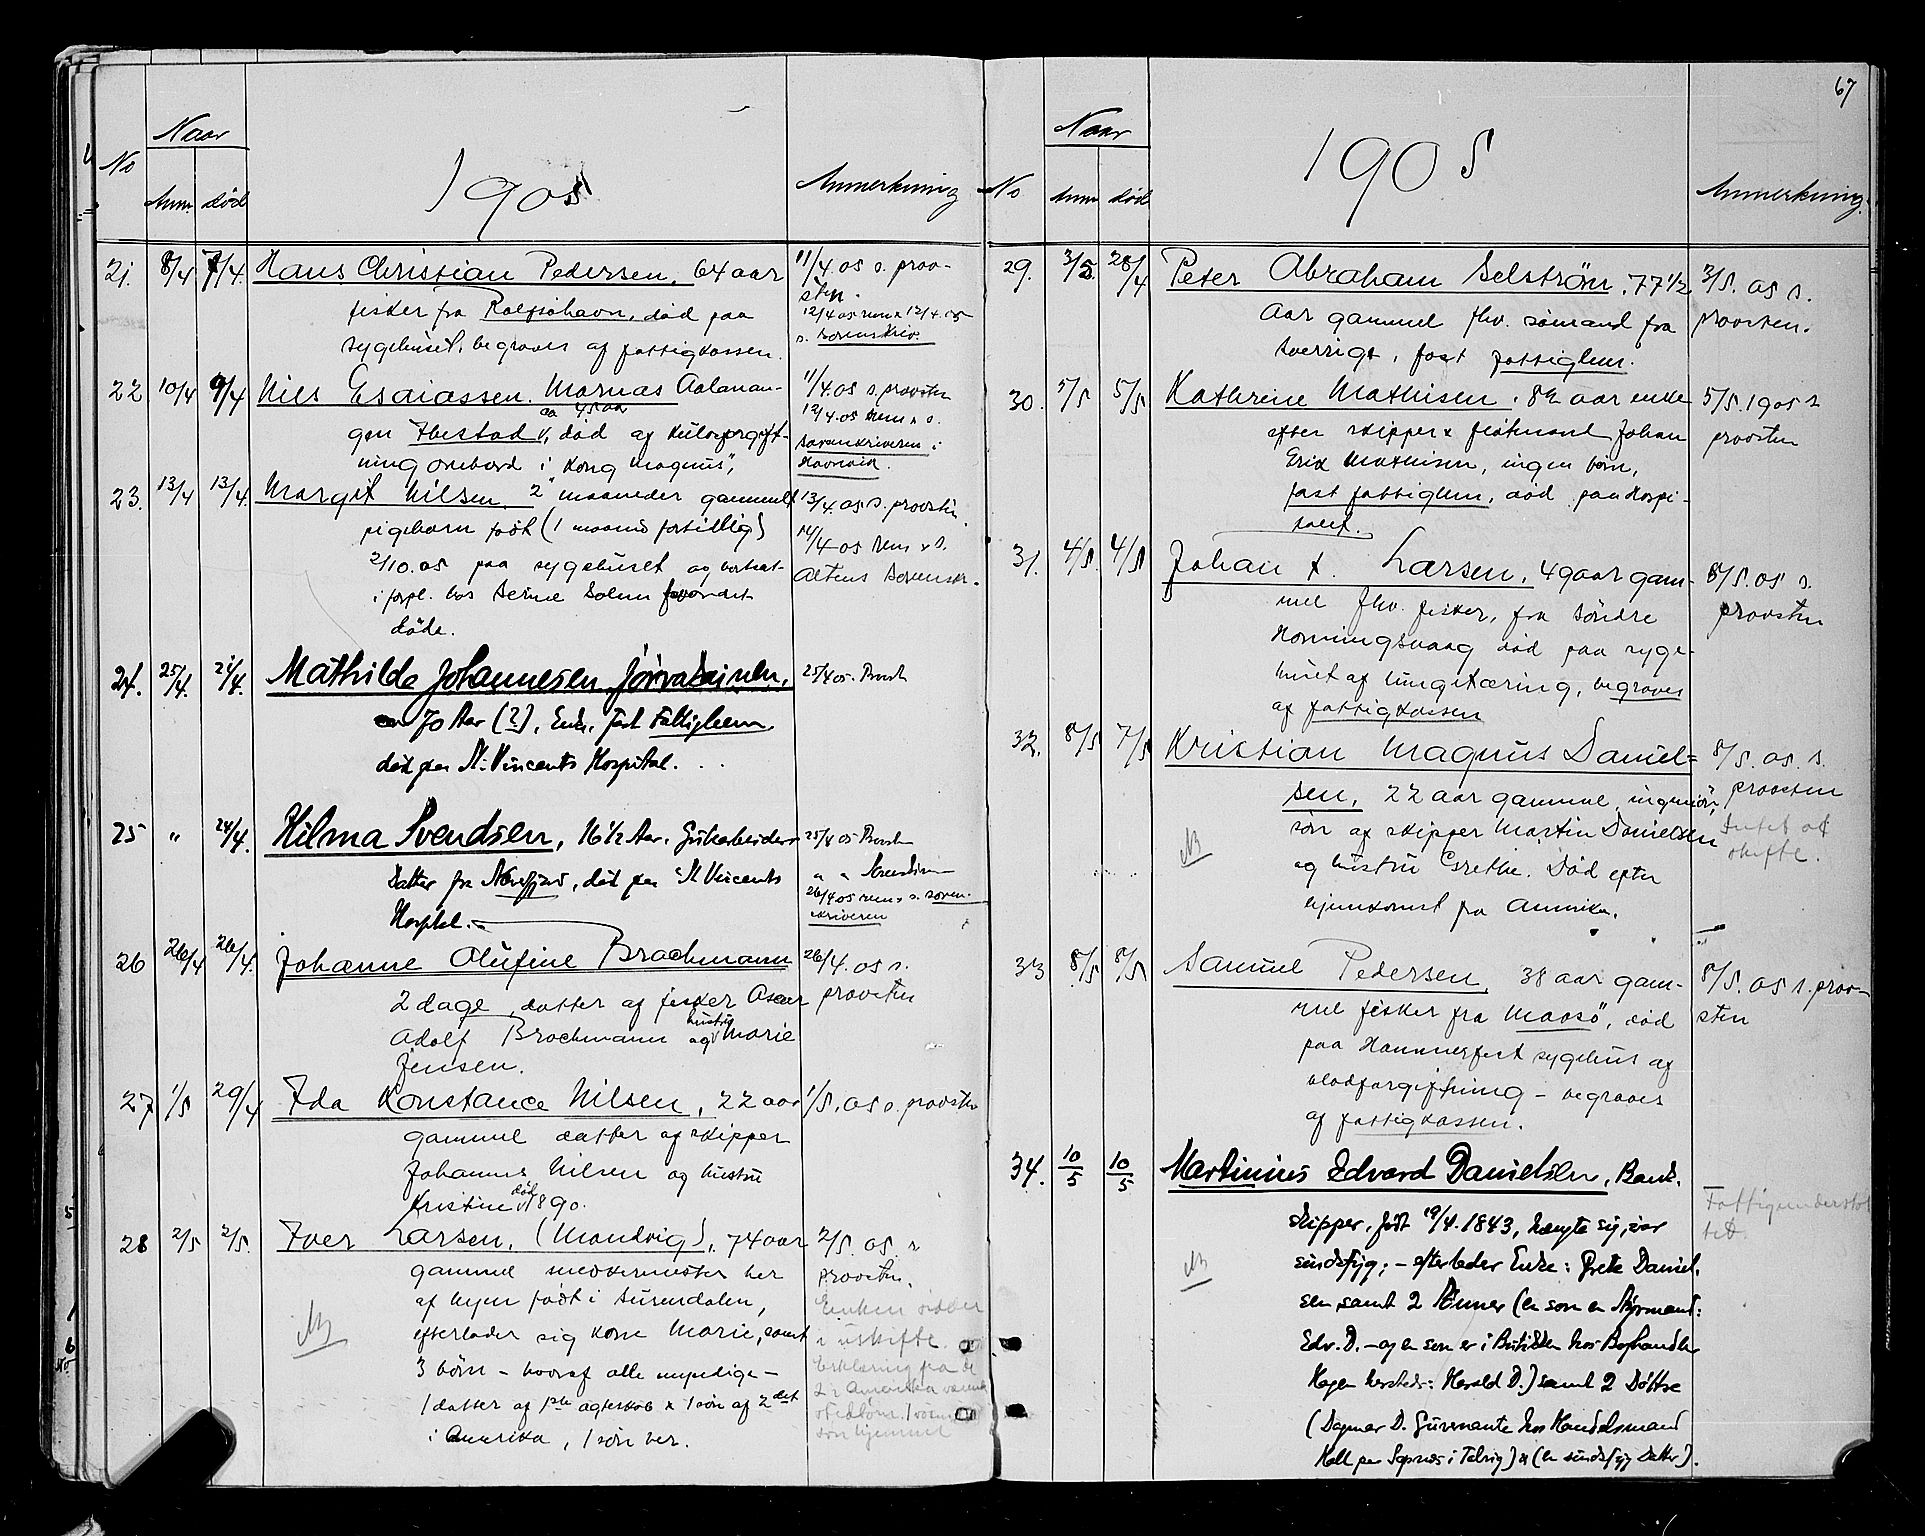 Naar
No
Anm. död
1905
Anmerkning
21. 8/4 7/4. Hans Christian Pedersen, 64 aar
fisker fra Rolfsöhavn, död paa
sygehuset, begraves af fattigkassen.
11/4.05 s. prov-
sten.
12/4 05 rem x 12/4.05
s. sorenskriv.
22 10/4 9/4 Nils Esaiassen. Mornas
aa 45 aar
gen Ibestad, död af kulosforgift-
ning ombord i "Kong Magnus",
11/4.05 s. provsten
12/4.05 rem x s.
sorenskriveren i
23. 13/4 13/4. Margit Nilsen 2 maaneder gammelt
pigebarn födt (1 maaned fortidlig)
2/10.05 paa sygehuset og bortsat
i forpl. hos Serine Solem
döde.
13/4.05 s. provstin.
14/4 05 rem x s.
Altens sorenskr.
24. 25/4. 24/4. Mathilde Johannesen
70 Aar (?), Enke, fast Fattiglem
död paa St. Vincents Hospital.
25/4 05. Provst
25 " 24/4. Hilma Svendsen, 16 1/2 Aar.
Datter fra Nevefjord, död paa St Vincents
Hospital.
25/4 05 Provst
" "
26/4 05 rem x s. soren-
skriveren
26 26/4 26/4. Johanne Olufine Brochmann
2 dage, datter af fisker Oscar
Adolf Brochmann og hustru Marie
Jensen.
26/4. 05 s.
provsten
27 1/5 29/4 Ida Konstance Nilsen, 22 aar
gammel datter af skipper
Johannes Nilsen og hustru
Kristine död 1890.
1/5. 05 s. provsten
28 2/5 2/5. Iver Larsen, (Mandvig), 74 aar
gammel snedkermester her
af byen födt i Surendalen,
efterlader sig kone Marie, samt
3 börn - hvoraf alle myndige -
1 datter af 1ste ægteskab x 1 sön af 2det
i Amerika, 1 sön her.
NB
2/5. 05. s
provsten.
Enken sidder
i uskifte.
Erklæring fra de
2 i Amerika
son hjemmet
67
Naar
No Anm död
1905
Anmerkning.
29. 3/5 28/4 Peter Abraham Selström. 77 1/2
Aar gammel fhv. sömand fra
Sverrige, fast fattiglem.
3/5. 05 s.
provsten.
30. 5/5 5/5 Kathrine Mathisen. 82 aar enke
efter skipper x Johan
Erik Mathisen, ingen börn,
fast fattiglem, död paa Hospi-
talet.
5/5. 1905 s
provsten
31. 4/5 4/5 Johan A. Larsen, 49 aar gam-
mel fhv. fisker, fra söndre
Honningsvaag död paa syge-
huset af lungetæring, begraves
af fattigkassen
8/5. 05 s.
provsten
32. 8/5 7/5 Kristian Magnus Daniel=
sen, 22 aar gammel, ingeniör,
sön af skipper Martin Danielsen
og hustru Grethe. Död efter
hjemkomst fra Amerika.
NB
8/5. 05. s.
provsten
Intet at
skifte.
33 8/5 8/5 Samuel Pedersen, 38 aar gam-
mel fisker fra Maasö, död
paa Hammerfest sygehus af
blodforgiftning - begraves
af fattigkassen.
8/5. 05 s. prov-
sten
34. 10/5 10/5 Martinius Edvard Danielsen, Baad-
skipper, födt 19/4. 1843, hængte sig, var
sindssyg; - efterlader Enke: Grete Daniel-
sen samt 2 Sönner (en som er Styrmand:
Edv. D. - og en som er i Butikken hos Boghandler
Hagen hersteds: Harald D.) samt 2 Döttre
(Dagmar D. Guvernante hos Handelsmand
Holl paa Sopnes i Talvig) & (en sindssyg Datter).
NB
Fattigunderstöt
tet.